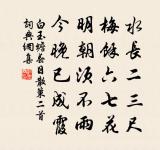 水長二三尺
梅餘六七花
明朝須不雨
今晚已成霞
白玉蟾春日散策二首
詞典網集